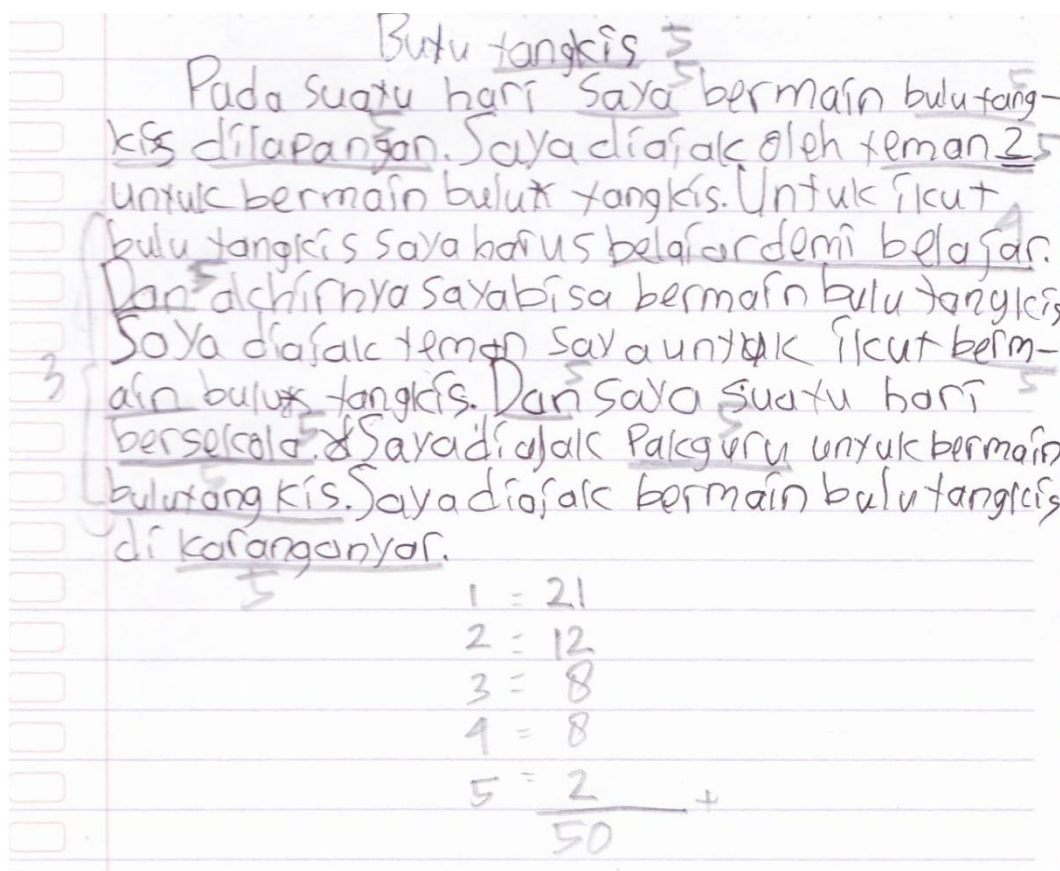 Bulu tangkis 5
Pada suatu hari Saya 5 bermain bulu tang- 5
kis dilapangan. 5 Saya diajak oleh teman 2 5
untuk bermain bulu tangkis. Untuk ikut
bulu tangkis saya harus belajar demi belajar. 4
Dan 5 akhirnya saya bisa bermain bulu tangkis
3 Saya diajak teman saya untuk ikut berm-
ain bulu tangkis. Dan 5 saya suatu hari 5
bersekola. 5 Saya diajak Pakguru 5 untuk bermain
bulutang kis. 5 Saya diajak bermain bulu tangkis
di karanganyar.
5
1 = 21
2 = 12
3 = 8
4 = 8
5 = 2 +
50